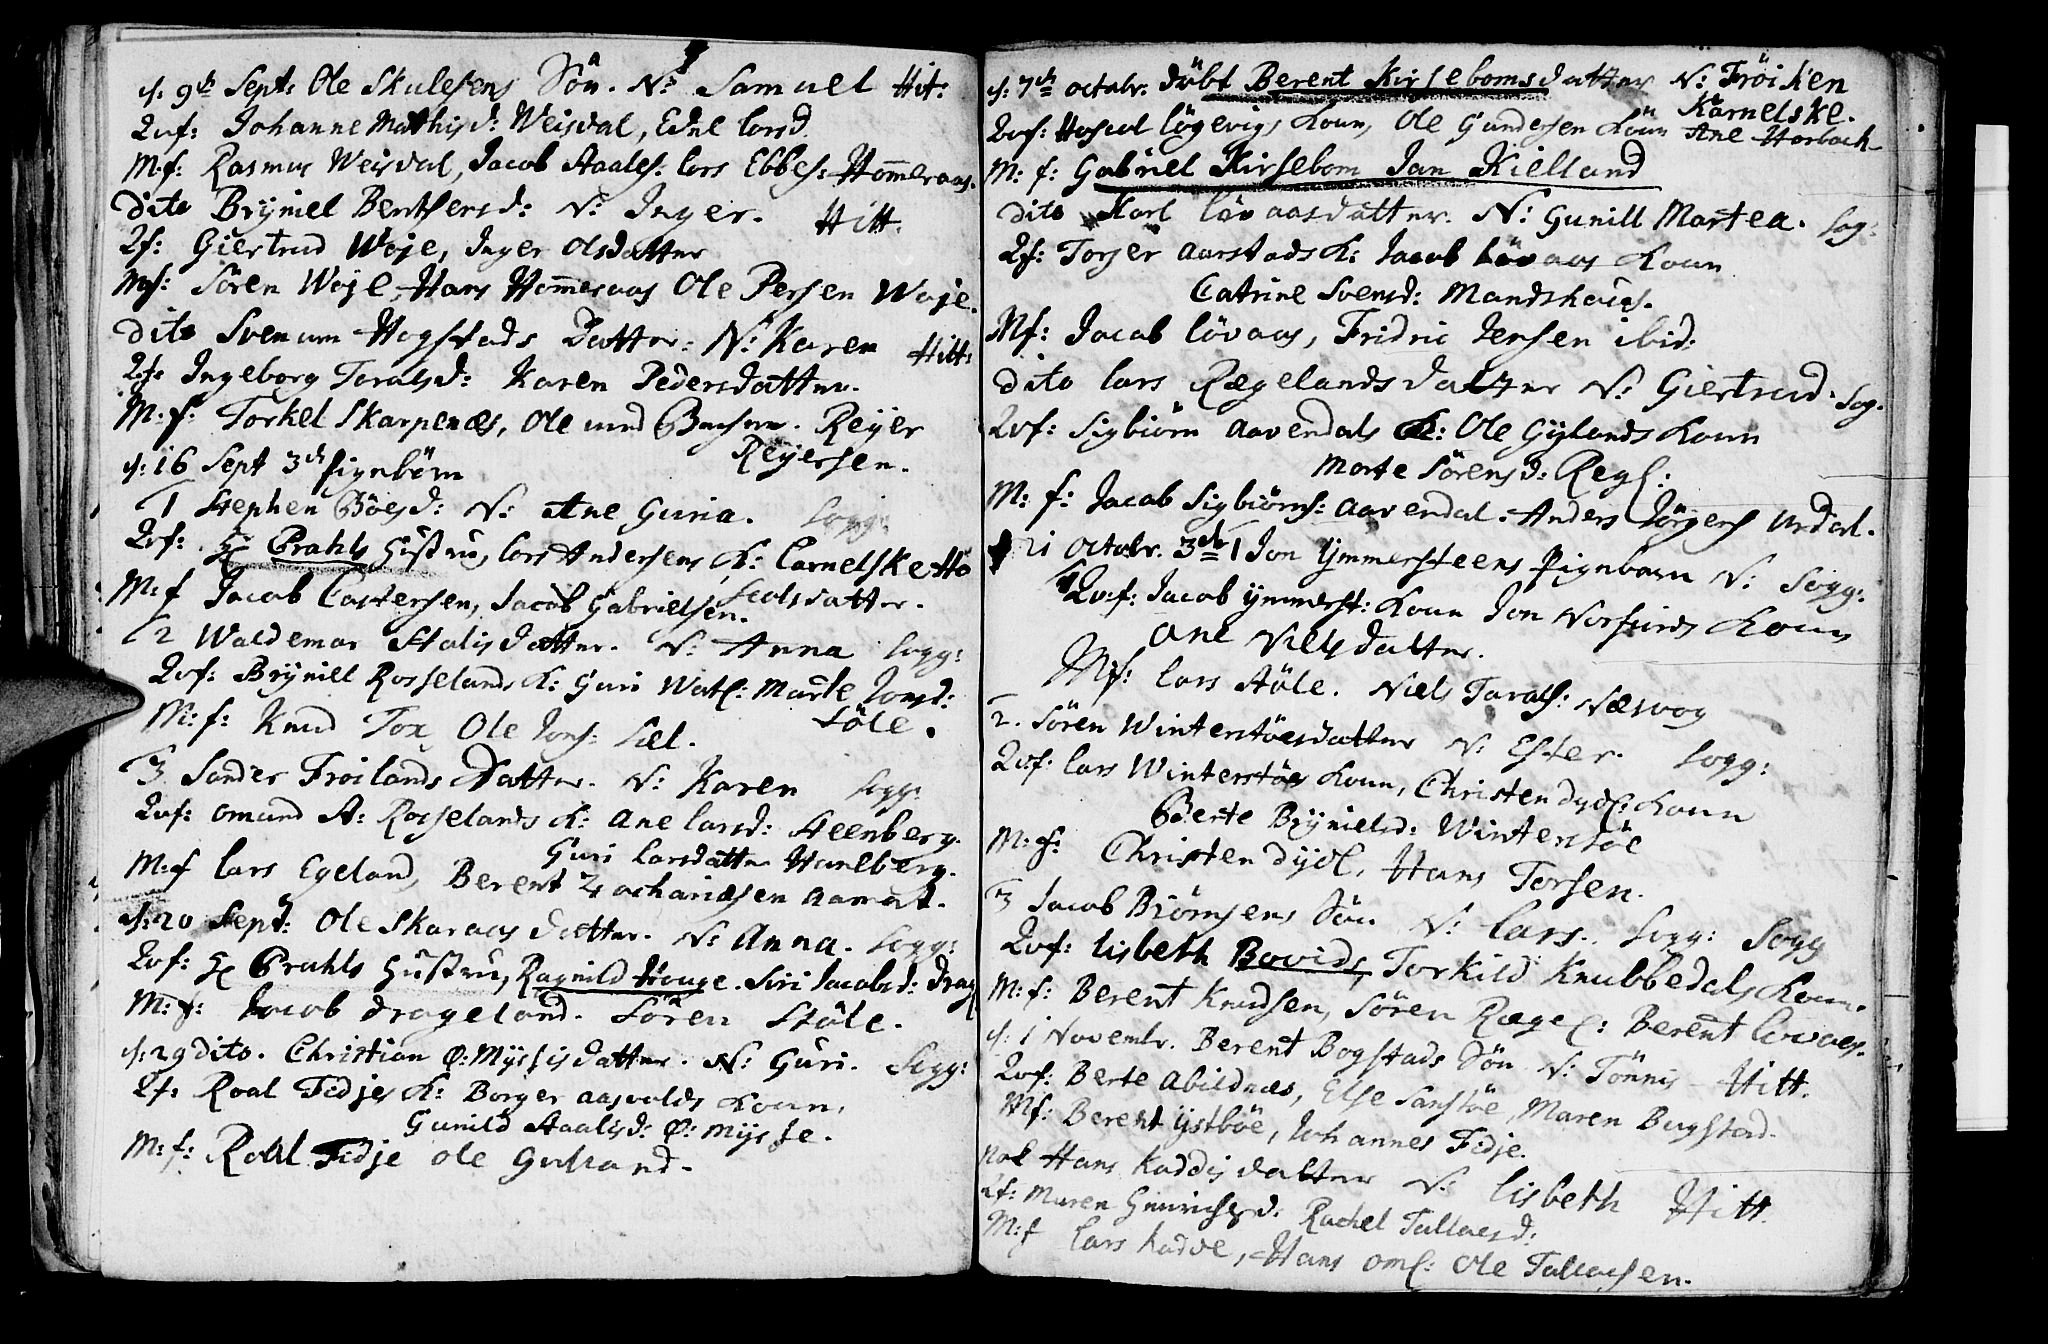 d: 9de Sept: Ole Skulesens Sön. N: Samuel Hit:
Qvf: Johanne Mathisd: Weisdal, Edel Corsd.
M:f: Rasmus Weisdal, Jacob Staales: Lars Ebbes: Hommeraas.
Dito Bryniel Bentsensd: N: Inger. Hitt.
Qf: Giertrud Woje, Inger Olsdatter
Mf: Sören Woje, Hans Hommeraas Ole Persen Woje.
Dito Svenum Hogstads Datter. N: Karen Hitt:
Qf: Ingeborg Toralsd: Karen Pedersdatter.
M:f: Torkel Skarpenæs, Ole Reyer
Reyersen.
d: 16 Sept 3de Pignbörn
1 Stephen Böesd: N: Ane Guria. Sogg:
Qvf: Hr Prahls Hustru, Lars Andersens K: Carnelske
M:f Jacob Castersen, Jacob Gabrielsen.
2 Waldemar Stalis Datter. N: Anna Sogg:
Qvf: Bryniel Rosselands K: Guri Marte Jonsd:
Stöle.
M:f: Knud Tox Ole Jons: Sæl.
3 Sander Fröilands Datter. N: Karen Sogg:
Qvf: Omund A: Rosselands K: Ane Larsd: Steenberg.
Guri Larsdatter Haneberg.
M:f Lars Egeland, Berent Zachariæsen Aamot.
d: 20 Sept: Ole Skaraas Datter. N: Anna. Sogg:
Qvf: Hr Prahls Hustru, Ragnild Houge. Siri Jacobsd: Drag
M:f: Jacob Drageland. Sören Stöle.
d: 29 dito. Christian Ø: Myssis Datter. N: Guri. Sogg:
Qf: Roal Fidjes K: Borger Aasvolds Koun,
Gunild Staalisd: Ø: Mysse.
M:f: Roal Fidje Ole
d: 7de Octobr. Döbt Berent Kirseboms Datter N: Fröiken
Karnelske.
Qvf: Lögevigs Koun, Ole Gundersen Koun Ane Horbach
M:f: Gabriel Kirsebom Jan Kielland
Dito Karl Lövaas datter. N: Gunill Martea. Sog:
Qf: Torger Aarstads K: Jacob Lövaas Koun
Catrine Svensd: Mandshaus.
Mf: Jacob Lövaas, Fridric Jensen ibid:
Dito Lars Rægelands datter N: Giertrud. Sog.
Qvf: Sigbiörn Aavendals K: Ole Gylands Koun
Marte Sörensd: Regl:
M:f: Jacob Sigbiörns: Aavendal. Anders Jörgens Urdal.
21 Octobr. 3de 1 Jon Ymmersteens Pignbarn N: Sogg:
Qvf: Jacob Ymmerst: Koun Jon Koun
Ane Nielsdatter.
Mf: Lars Stöle. Niels Tarals: Næsvog
2. Sören Winterstöes datter N: Ester. Sogg:
Qvf: Lars Winterstöes Koun, Christen Dydl: Koun
Berte Brynielsd: Winterstöe
M:f: Christen Dydl, Hans Torsen.
3 Jacob Biörnsens Sön N: Lars. Sogg: Sogg
Qvf: Lisbeth Bovids, Torkild Knubbedals Koun.
M:f: Berent Knudsen, Sören Rægel: Berent Lovaas.
d: 1 Novembr. Berent Bogstads Sön N: Tönnis Hitt.
Qvf: Berte Abildnæs, Else Sanstöe, Maren Bugstad.
Mf: Berent Ystböe, Johannes Fidje.
Nok Hans Kaddis datter N: Lisbeth Hitt.
Qf: Maren Rachel Tallaksd:
M:f Lars Kadde, Hans Oml: Ole Tallaksen.